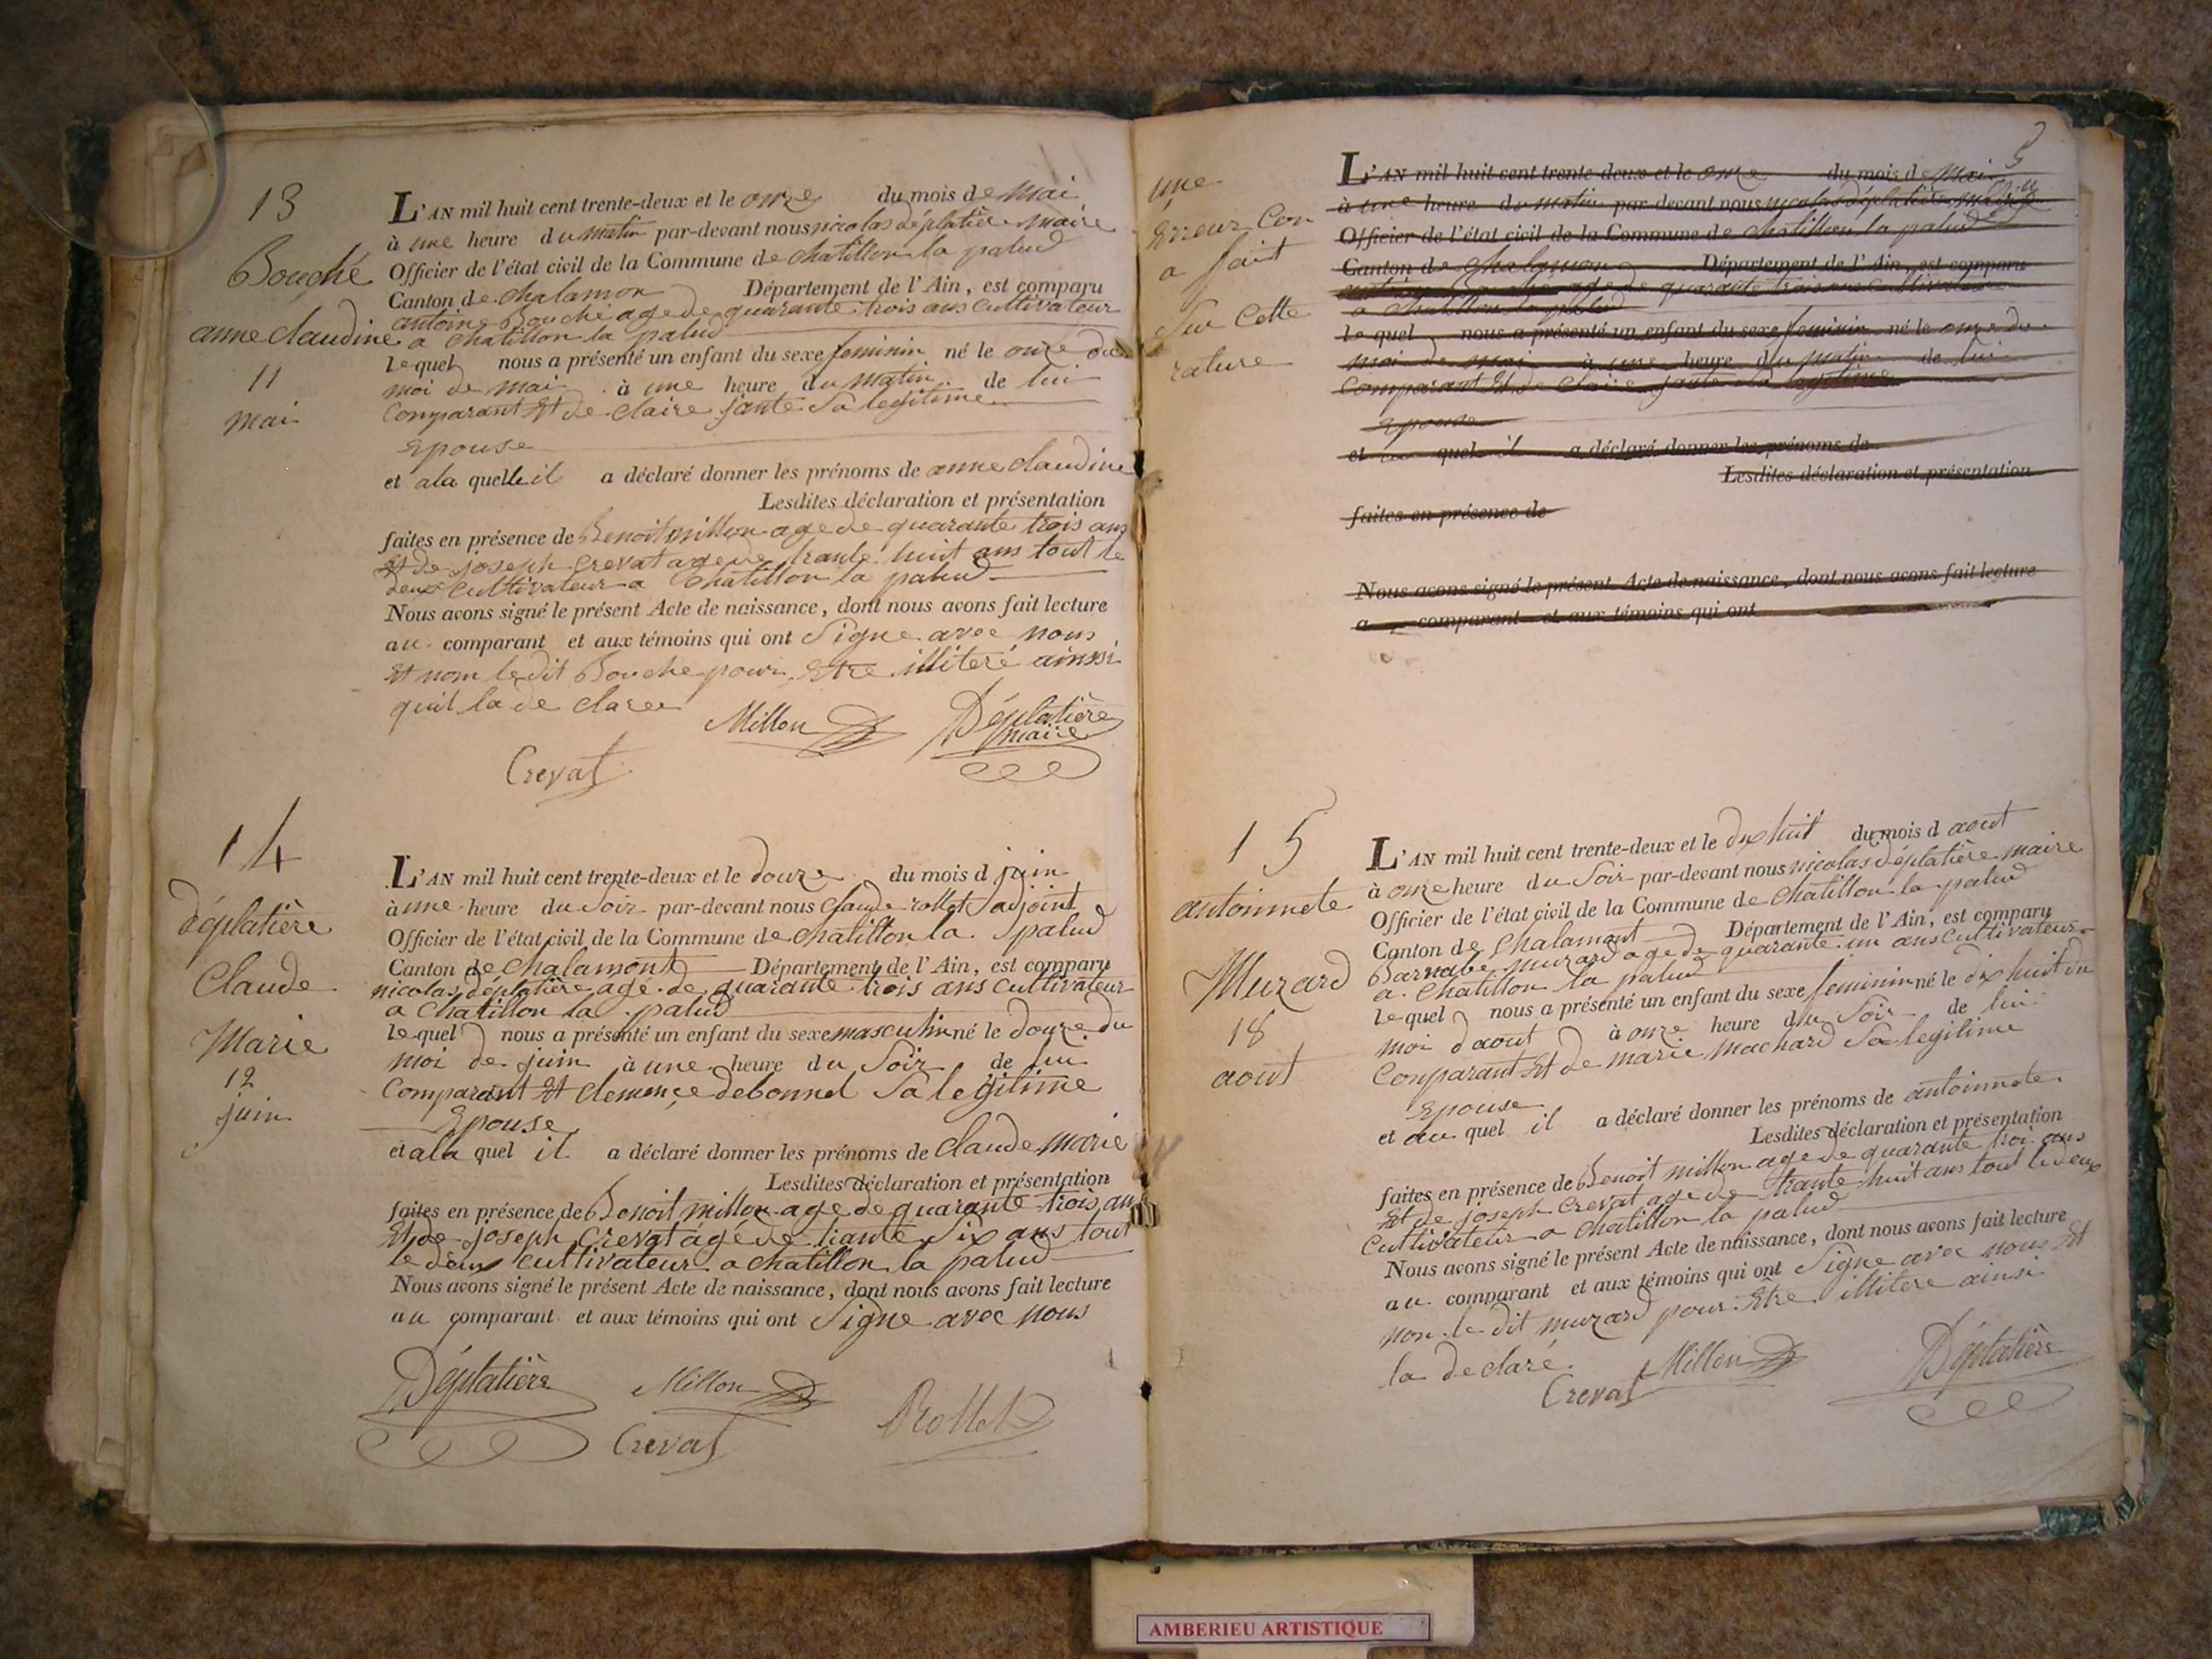 13
Bouché
anne claudine
11
mai
L'AN mil huit cent trente-deux et le onze du mois de mai
à une heure du matin par-devant nous nicolas déplatière maire
Officier de l'état civil de la Commune de chatillon la palud
Canton de chalamon Département de l'Ain, est comparu
antoine Bouché age de quarante trois ans cultivateur
a chatillon la palud
lequel nous a présenté un enfant du sexe feminin né le onze du
moi de mai à une heure du matin de lui
comparant Et de claire jante sa legitime
Epouse
et a la quelle il a déclaré donner les prénoms de anne claudine
Lesdites déclaration et présentation
faites en présence de Benoit millon age de quarante trois ans
Et de joseph crevat age de trante huit ans tout le
deux cultivateur a Chatillon la palud
Nous avons signé le présent Acte de naissance, dont nous avons fait lecture
au comparant et aux témoins qui ont Signe avec nous
Et nom le dit Bouche pour Etre illiteré ainssi
quil la de claree
Millon Déplatière
maire
Crevat
14
déplatière
Claude
Marie
12
juin
L'AN mil huit cent trente-deux et le douze du mois d juin
à une heure du Soir par-devant nous claude rollet adjoint
Officier de l'état civil de la Commune de chatillon la palud
Canton de chalamont Département de l'Ain, est comparu
nicolas déplatière age de quarante trois ans cultivateur
a chatillon la palud
lequel nous a présenté un enfant du sexe masculin né le douze du
moi de juin à une heure du Soir de lui
comparant Et clemençe debonnel Sa legitime
Epouse
et a la quel il a déclaré donner les prénoms de claude marie
Lesdites déclaration et présentation
faites en présence de Benoit millon age de quarante trois an
Et de joseph crevat agé de trante Six ans tout
le deux cultivateur a chatillon la palud
Nous avons signé le présent Acte de naissance, dont nous avons fait lecture
au comparant et aux témoins qui ont Signe avec nous
Déplatière Millon
Crevat Rollet
3
une
Erreur Con
a fait
Sur Cette
rature
L'AN mil huit cent trente-deux et le onze du mois de mai
à une heure du matin par-devant nous nicolas déplatière maire
Officier de l'état civil de la Commune de chatillon la palud
Canton de chalamon Département de l'Ain, est comparu
antoine Bouche age de quarante trois ans cultivateur
a chatillon la palud
lequel nous a présenté un enfant du sexe feminin né le onze du
moi de mai à une heure du matin de lui
comparant Et de claire jante sa legitime
Epouse
et au quel il a déclaré donner les prénoms de
Lesdites déclaration et présentation
faites en présence de
Nous avons signé le présent Acte de naissance, dont nous avons fait lecture
a comparant et aux témoins qui ont
15
antoinnete
Muzard
18
aout
L'AN mil huit cent trente-deux et le dix huit du mois d aout
à onze heure du Soir par-devant nous nicolas déplatière maire
Officier de l'état civil de la Commune de chatillon la palud
Canton de Chalamont Département de l'Ain, est comparu
Barnabe muzard age de quarante un ans cultivateur
a chatillon la palud
lequel nous a présenté un enfant du sexe feminin né le dix huit du
moi d aout à onze heure du Soir de lui
comparant Et de marie machard Sa legitime
Epouse
et au quel il a déclaré donner les prénoms de antoinnete
Lesdites déclaration et présentation
faites en présence de Benoit millon age de quarante troi ans
Et de joseph crevat age de trante huit ans tout le deux
cultivateur a chatillon la palud
Nous avons signé le présent Acte de naissance, dont nous avons fait lecture
au comparant et aux témoins qui ont Signe avec nous Et
non le dit muzard pour Etre illitere ainsi
la declaré
Crevat Millon Déplatière
AMBERIEU ARTISTIQUE